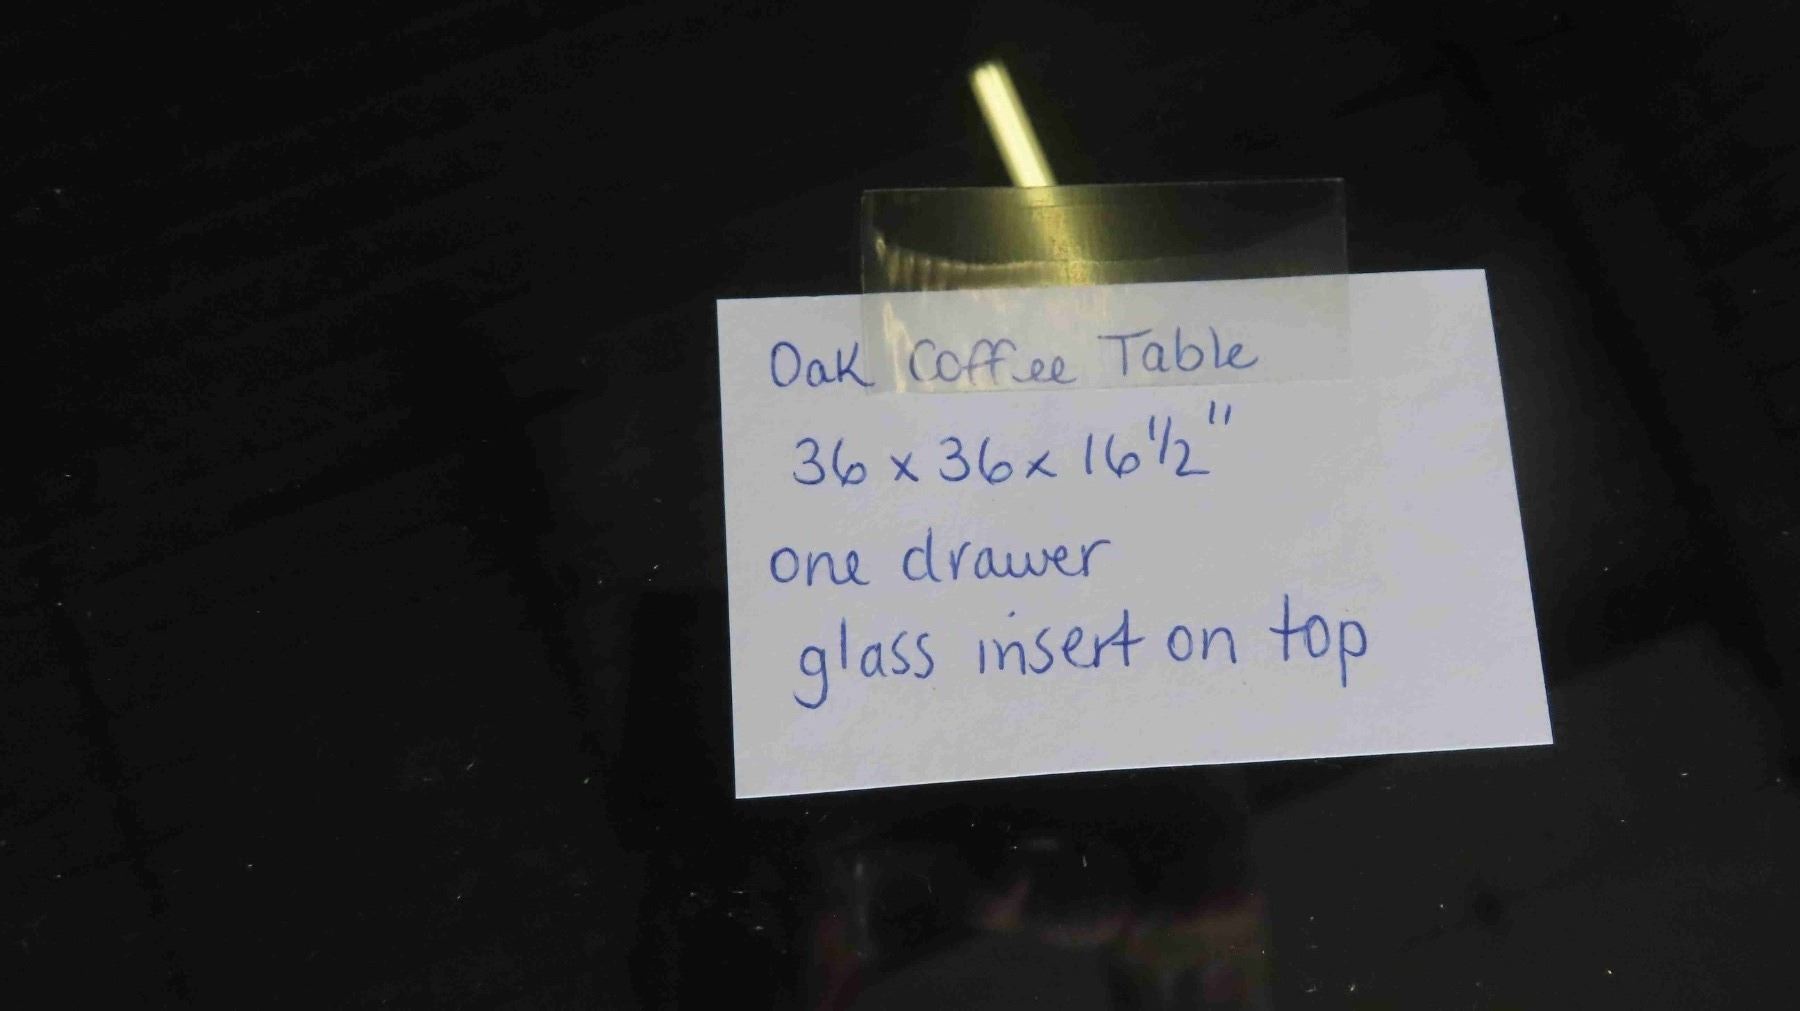 Oak Coffee Table
36 x 36 x 16 1/2"
one drawer
glass insert on top